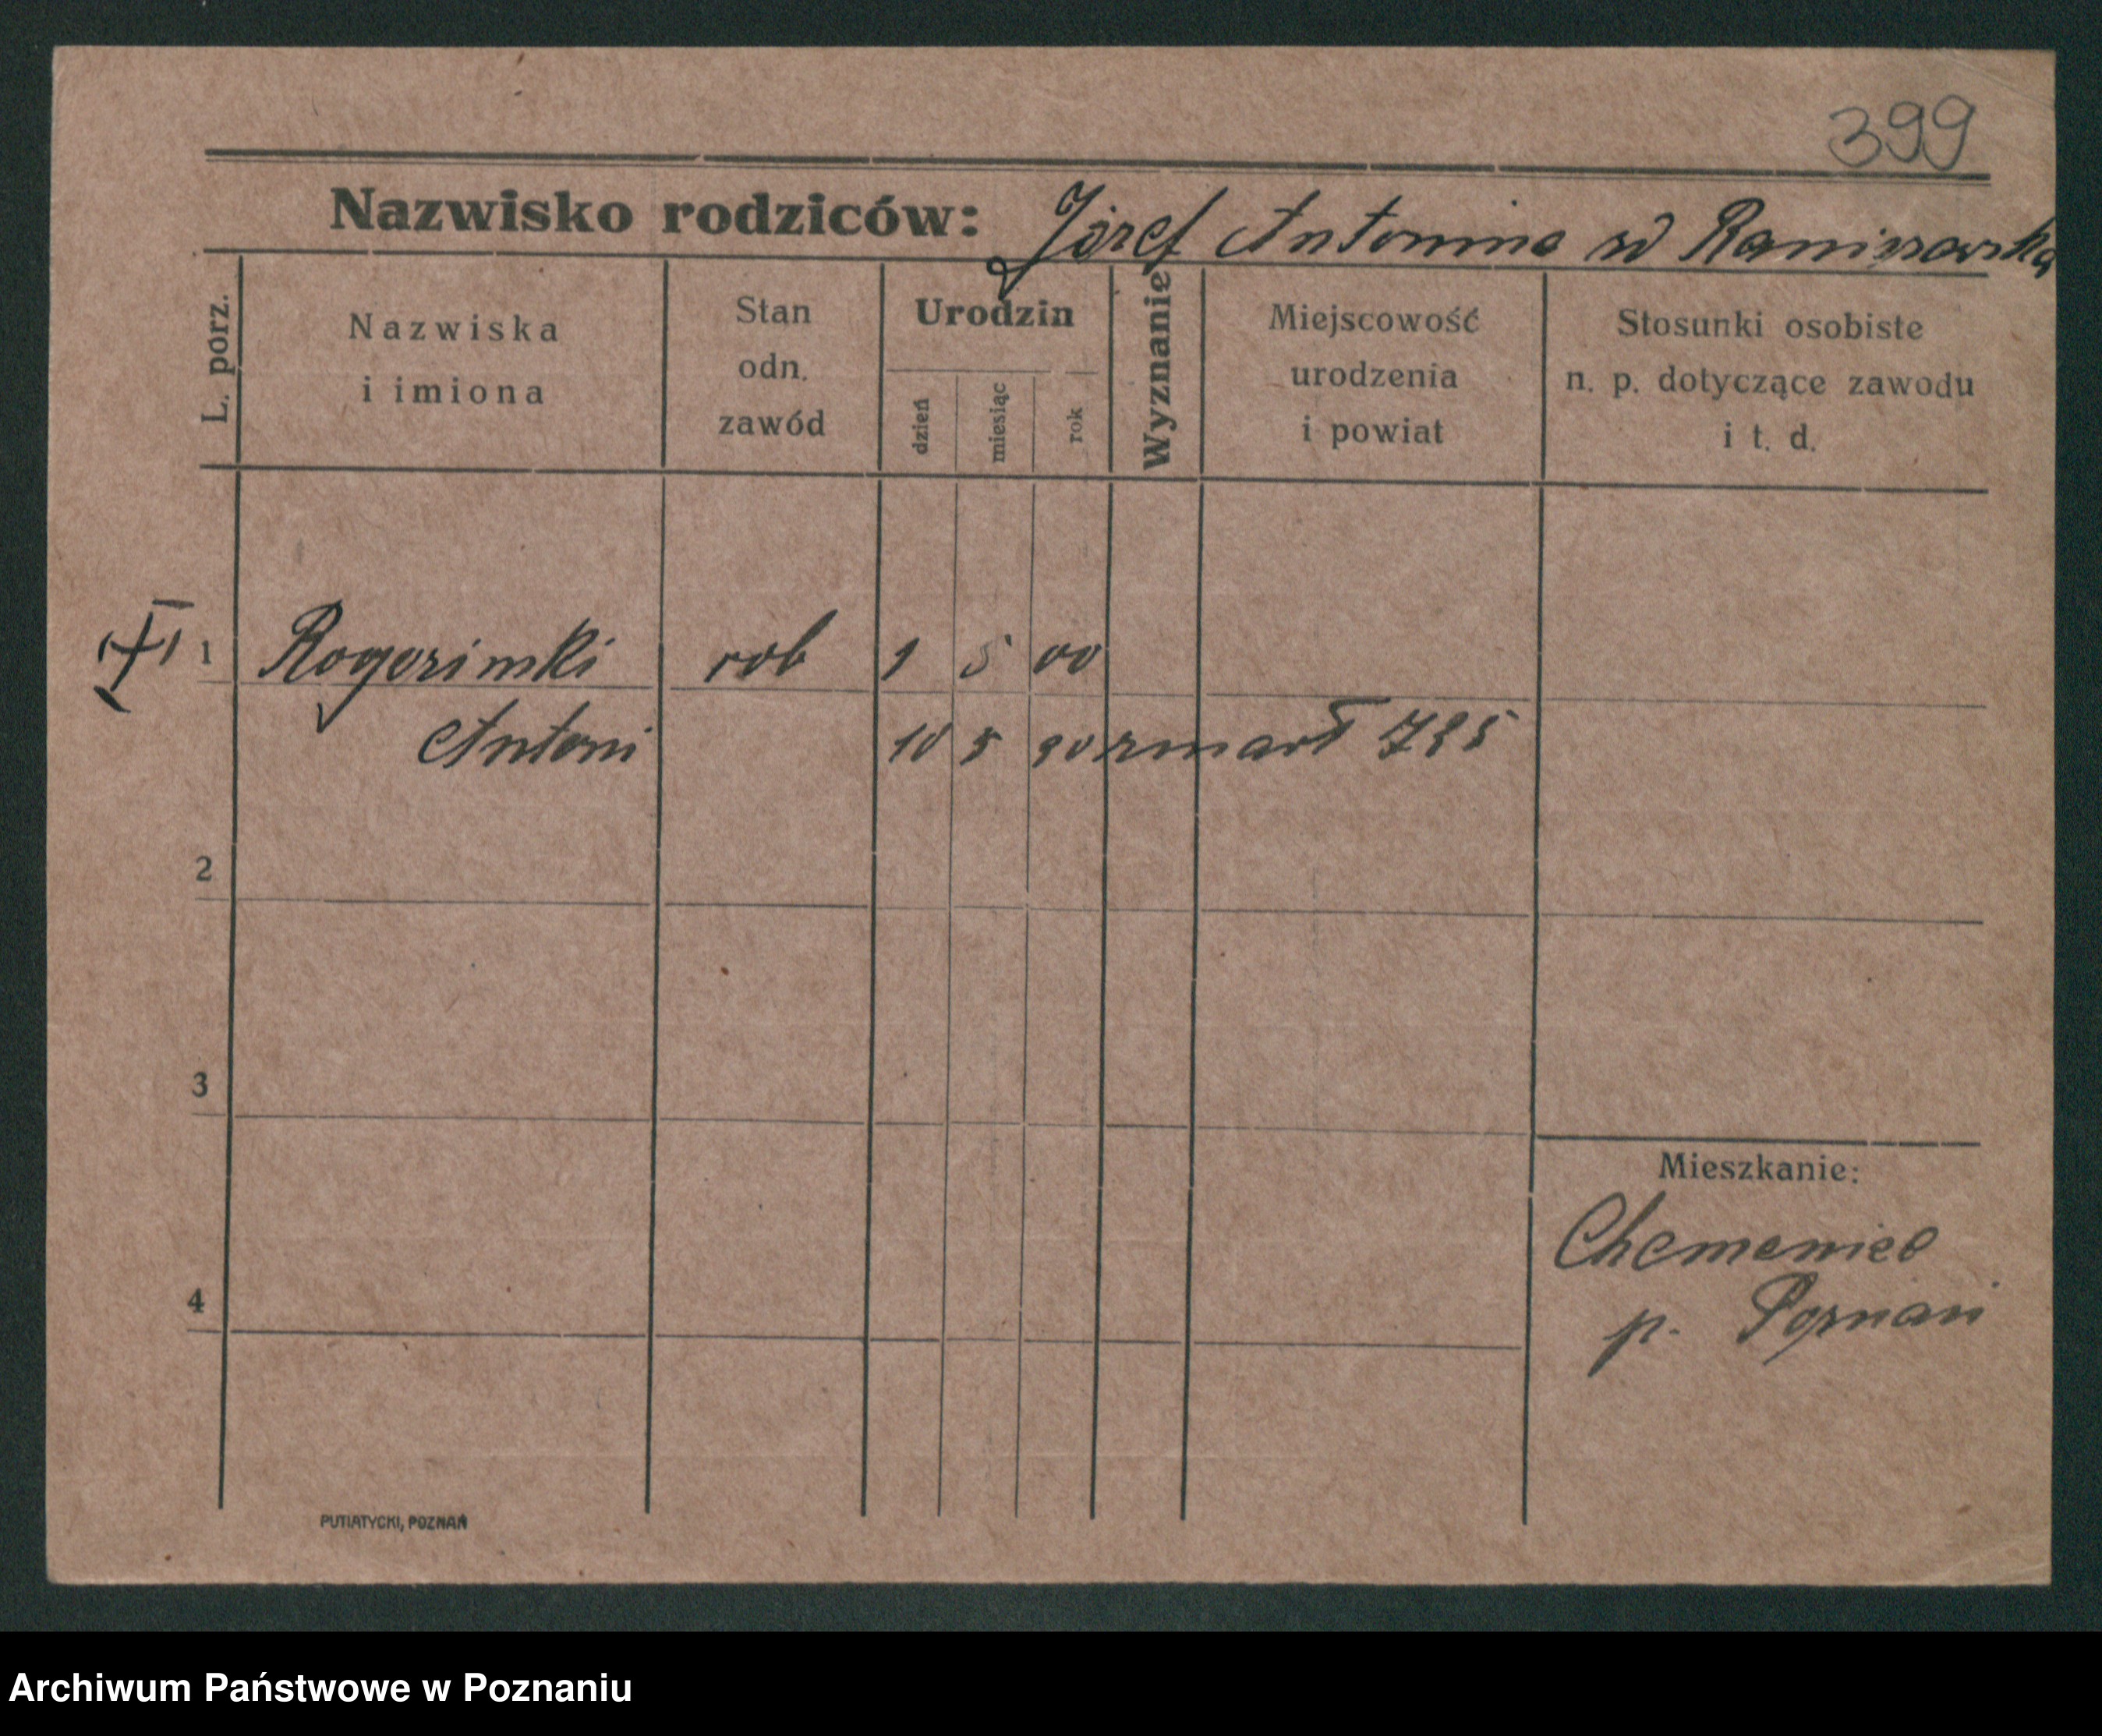 399
Nazwisko rodziców: Józef Antonina
L. porz.
Nazwiska
i imiona
Stan
odn.
zawód
Urodzin
dzień
miesiąc
rok
Wyznanie
Miejscowość
urodzenia
i powiat
Stosunki osobiste
n. p. dotyczące zawodu
i t. d.
1 rob 1 5 00
Antoni 10 5 90 zmarł
2
3
Mieszkanie:
4
p. Poznań
PUTIATYCKI, POZNAŃ
Archiwum Państwowe w Poznaniu